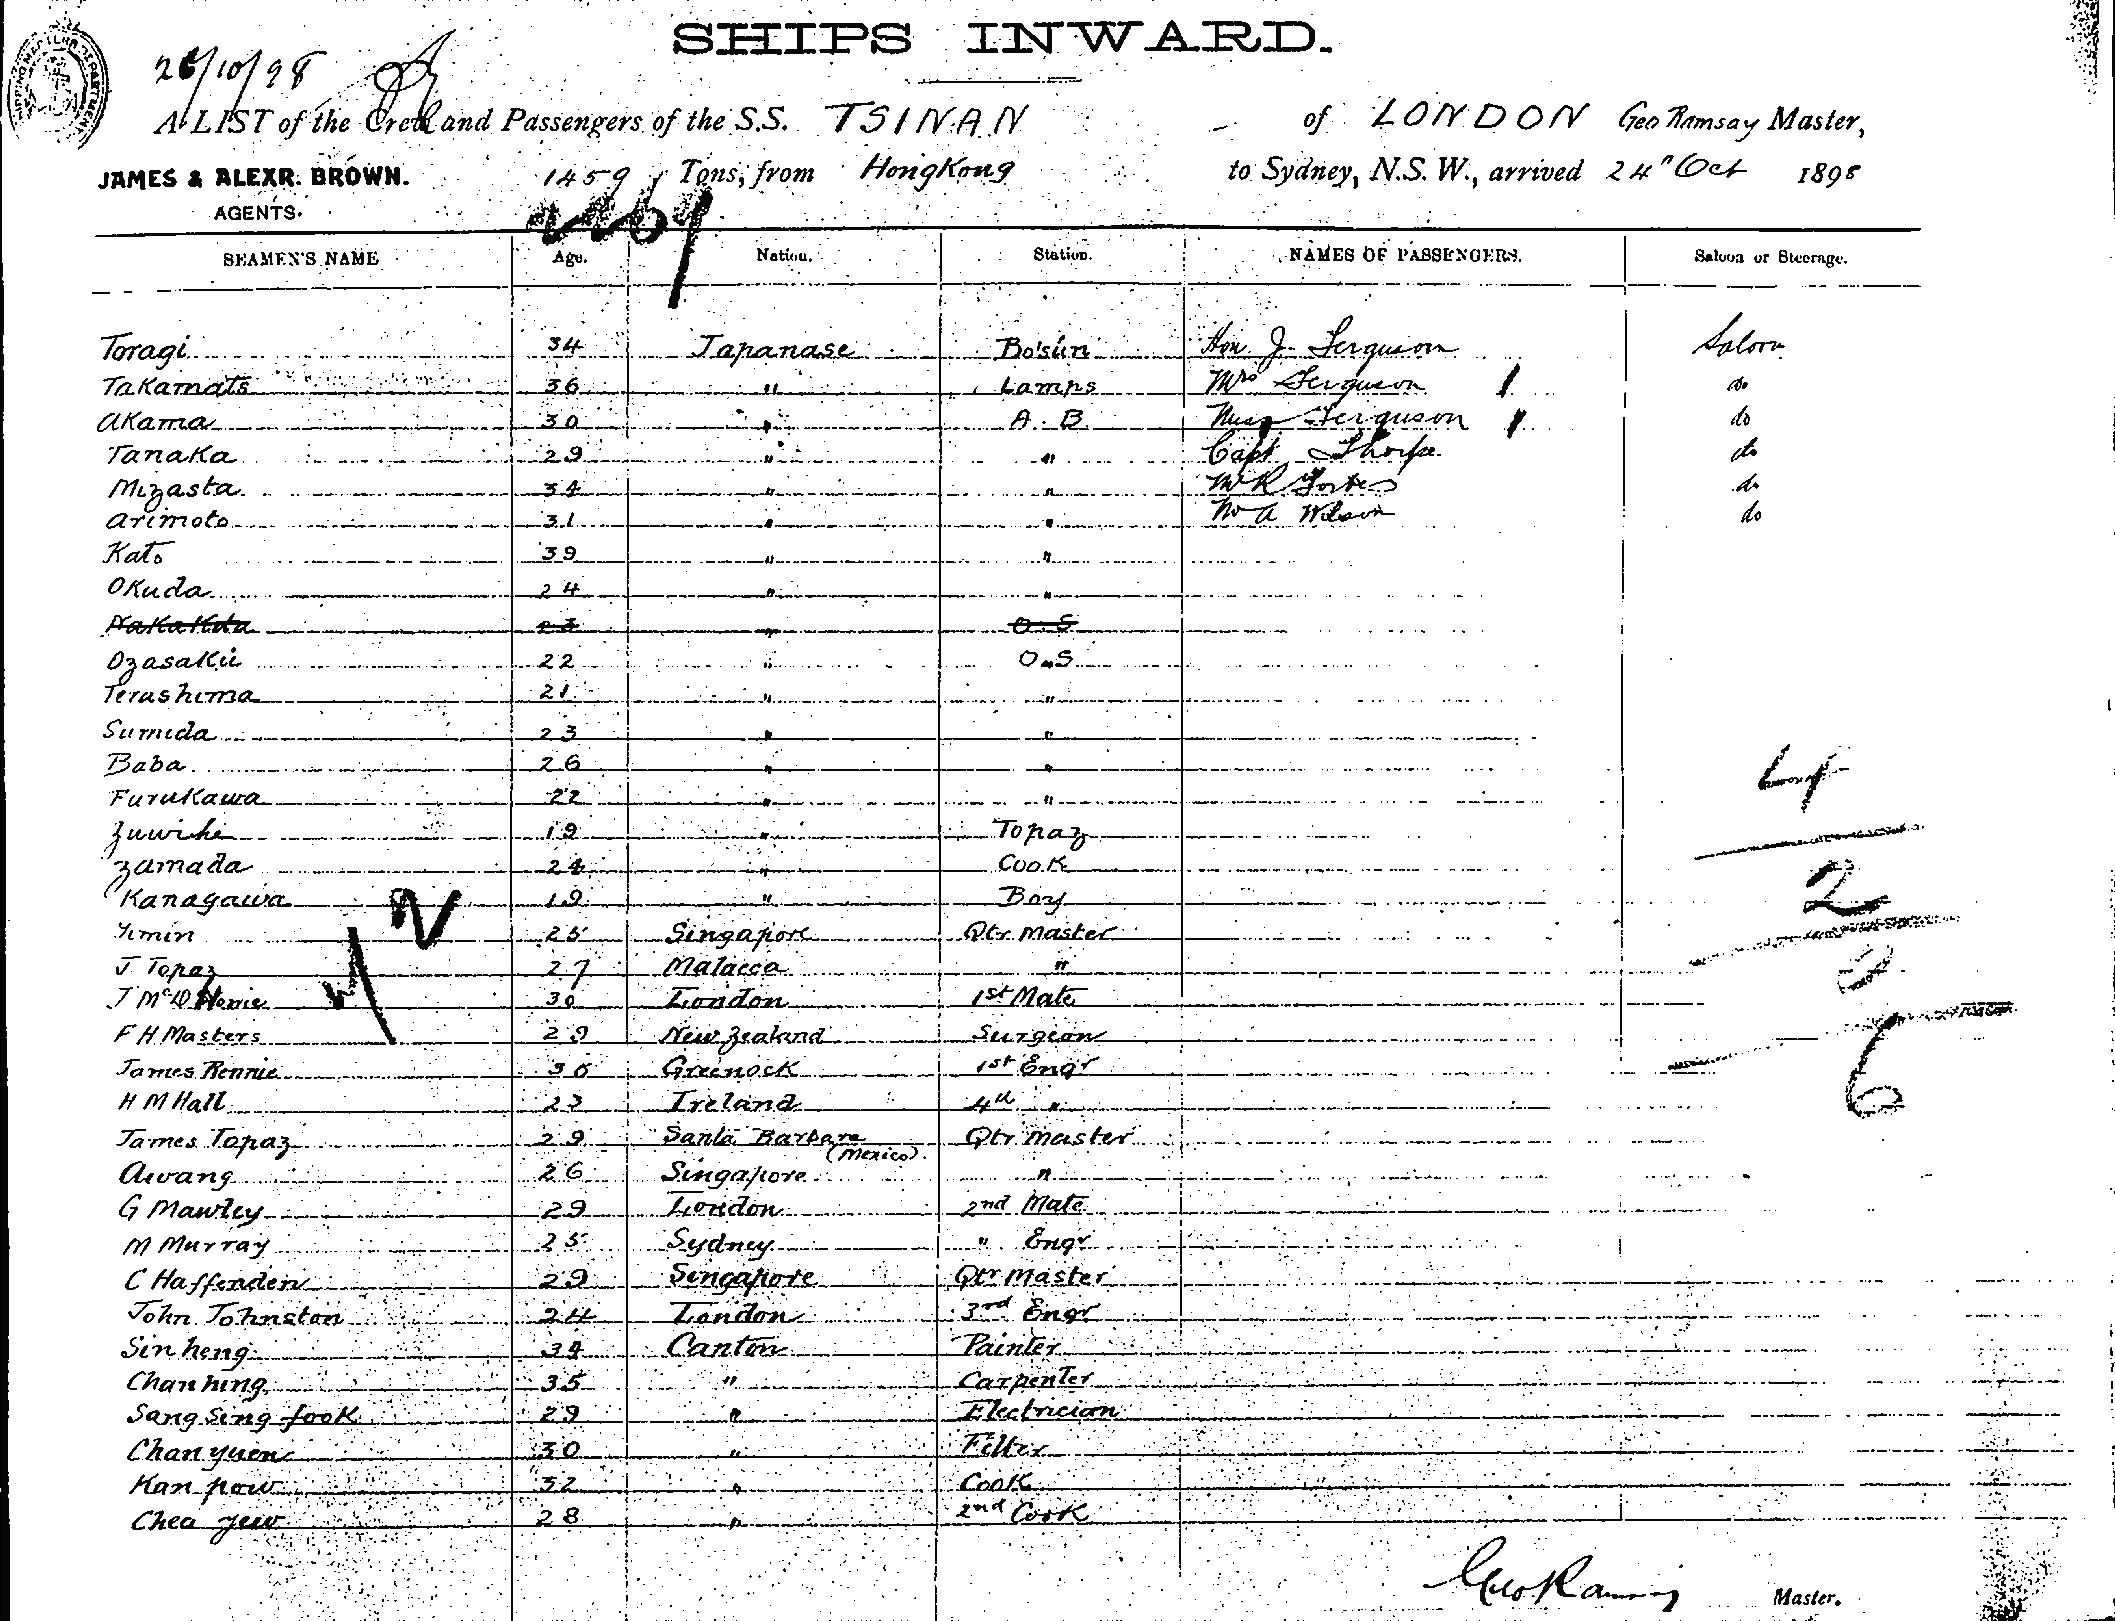 SHIPS INWARD.
26/10/98
A LIST of the Crew and Passengers of the S.S. TSINAN of LONDON Geo Ramsay Master,
JAMES & ALEXR. BROWN. 1459 Tons, from HongKong to Sydney, N.S.W., arrived 24" Oct 1898
AGENTS.
SEAMEN'S NAME Age. Nation. Station. NAMES OF PASSENGERS. Saloon or Steerage.
Toragi 34 Japanase Bo'sun Hon J. Ferguson Saloon
Takamats 36 " Lamps Mrs Ferguson do
Akama 30 " A.B Miss Ferguson do
Tanaka 29 " " Capt Thorpe do
Mizasta 34 " " Mr R Forbes do
Arimoto 31 " " Mr A Wilson do
Kato 39 " "
Okuda 24 " "
Nakakita 23 " O.S
Ozasaku 22 " O.S
Terashima 21 " "
Sumida 23 " "
Baba 26 " "
Furukawa 22 " "
Zuwiche 19 " Topaz
Zamada 24 " Cook
Kanagawa 19 " Boy
Yimin 25 Singapore Qtr Master
J Topaz 27 Malacca "
J McD 30 London 1st Mate
F H Masters 29 New Zealand Surgeon
James Rennie 30 Greenock 1st Engr
H M Hall 23 Ireland 4th "
James Topaz 29 Santa Barbara (Mexico) Qtr Master
Awang 26 Singapore "
G Mawley 29 London 2nd Mate
M Murray 25 Sydney " Engr
C Haffenden 29 Singapore Qtr Master
John Johnston 24 London 3rd Engr
Sin heng 34 Canton Painter
Chan hing 35 " Carpenter
Sang Sing fook 29 " Electrician
Chan yuen 30 " Fitter
Kan pow 32 " Cook
Chea yew 28 " 2nd Cook
4
2
6
Geo Ramsay Master.